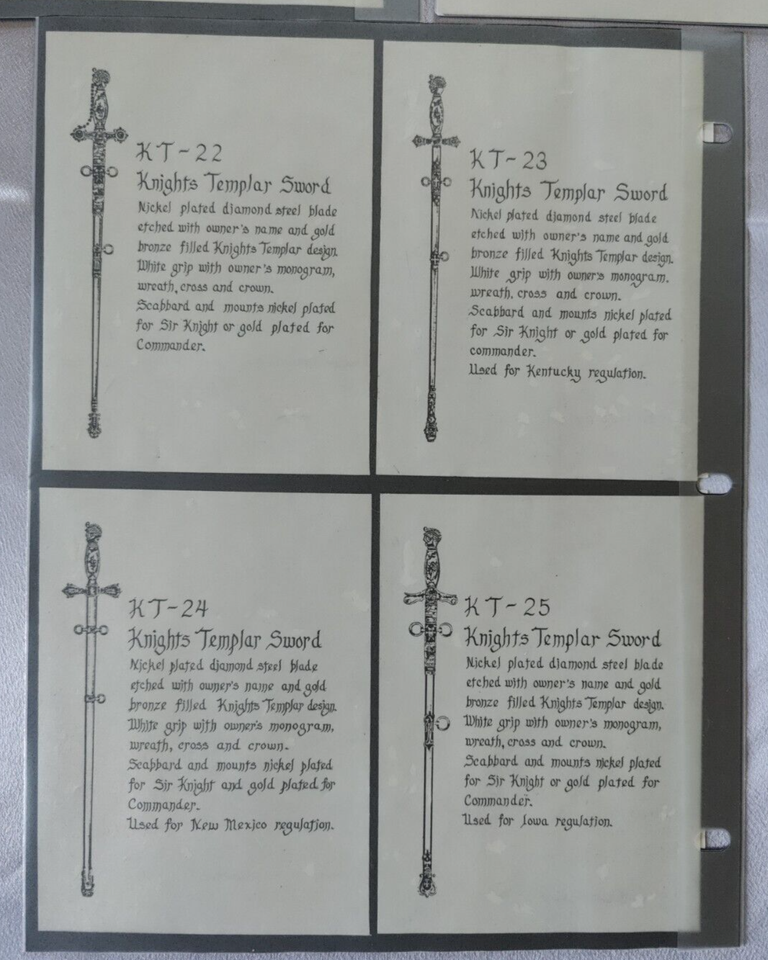 KT-22
Knights Templar Sword
Nickel plated diamond steel blade
etched with owner's name and gold
bronze filled Knights Templar design.
White grip with owner's monogram,
wreath, cross and crown.
Scabbard and mounts nickel plated
for Sir Knight or gold plated for
Commander.
KT-23
Knights Templar Sword
Nickel plated diamond steel blade
etched with owner's name and gold
bronze filled Knights Templar design.
White grip with owner's monogram,
wreath, cross and crown.
Scabbard and mounts nickel plated
for Sir Knight or gold plated for
commander.
Used for Kentucky regulation.
KT-24
Knights Templar Sword
Nickel plated diamond steel blade
etched with owner's name and gold
bronze filled Knights Templar design.
White grip with owner's monogram,
wreath, cross and crown.
Scabbard and mounts nickel plated
for Sir Knight and gold plated for
Commander.
Used for New Mexico regulation.
KT-25
Knights Templar Sword
Nickel plated diamond steel blade
etched with owner's name and gold
bronze filled Knights Templar design.
White grip with owner's monogram,
wreath, cross and crown.
Scabbard and mounts nickel plated
for Sir Knight or gold plated for
Commander.
Used for Iowa regulation.